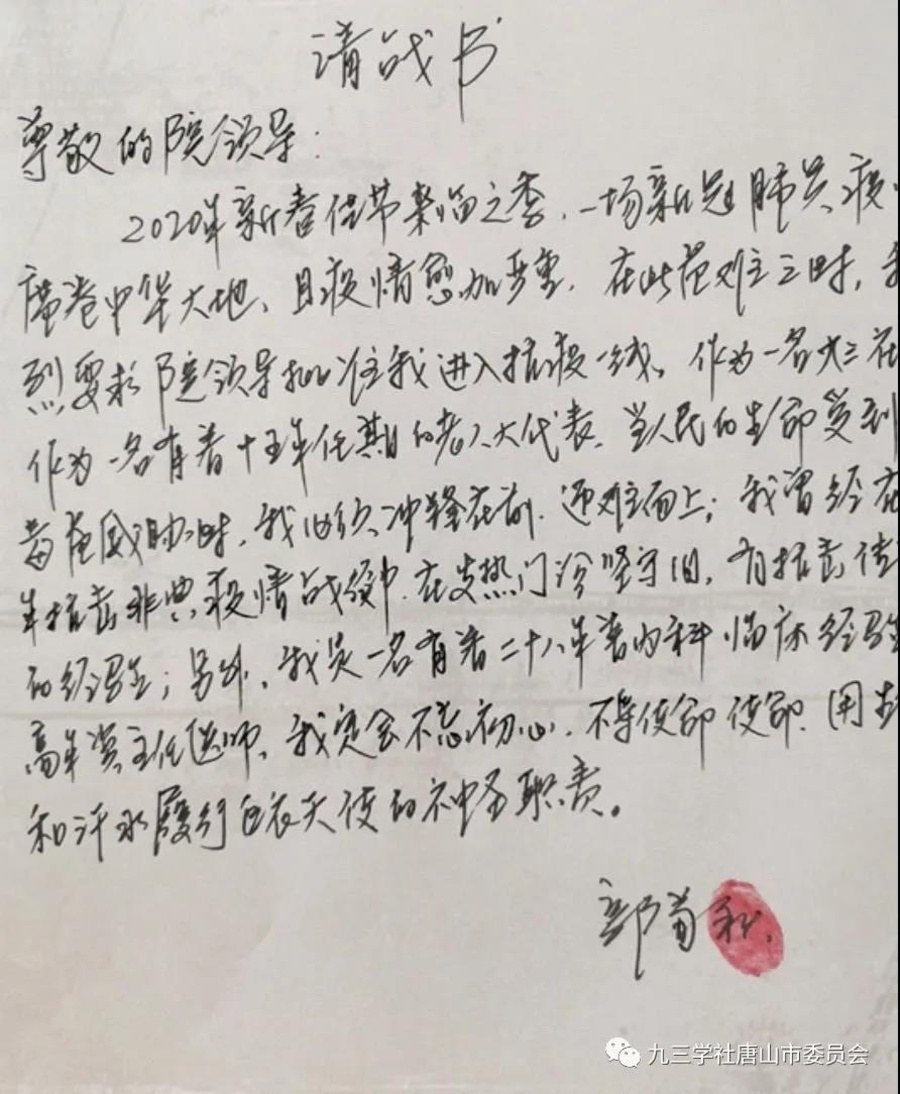 请战书
尊敬的院领导：
2020年新春佳节来临之季，一场新冠肺炎疫
席卷中华大地、且疫情愈加严重，在此危难之时，我
烈要求院领导批准我进入抗疫一线。作为一名九三
作为一名有着十五年任期的老人大代表，当人民的生命受到
威胁时，我必须冲锋在前，迎难而上；我曾经在
年抗击非典疫情战役中，在发热门诊坚守 ，有抗击传
的经验；另外，我是一名有着二十八年 内科临床经验
高年资主任医师，我定会不忘初心，不辱使命使命，用
和汗水履行白衣天使的神圣职责。
郭 秋
九三学社唐山市委员会